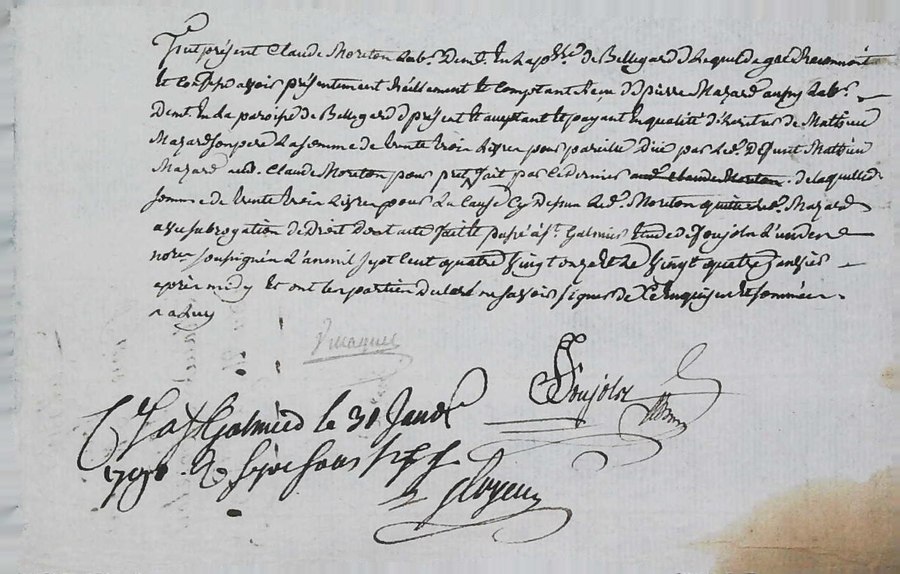 fut présent Claude Moreton Lab.r Demt. En La pssse. de Bellegard Lequel de gré Reconnoit
Et confesse avoir présentement réellement et comptant Reçu de pierre Mazard aussy Lab.r
Demt. En La paroisse de Bellegard présent Et aceptant et payant En qualité d'héritier de Mathieu
Mazard Son pere La Somme de trente trois Livres pour pareille Due par Led. Defunt Mathieu
Mazard aud. Claude Moreton pour pret fait par Ce dernier aud. Claude Moreton. de laquelle d.
Somme de trente trois Livres pour La Cause Cy Dessus Led. Moreton quitte Led. Mazard
avec subrogation de Droit dont acte fait et passé à St. Galmier Etude de Soujols L'un des
nores. soussignés L'an mil Sept Cent quatre Vingt onze et Le Vingt quatre Janvier
après midy Et ont Les parties declaré ne savoir signer de Ce Enquises Et sommées.
Soujols
a St Galmier le 30 Janvr.
1791. Rç quinze sous